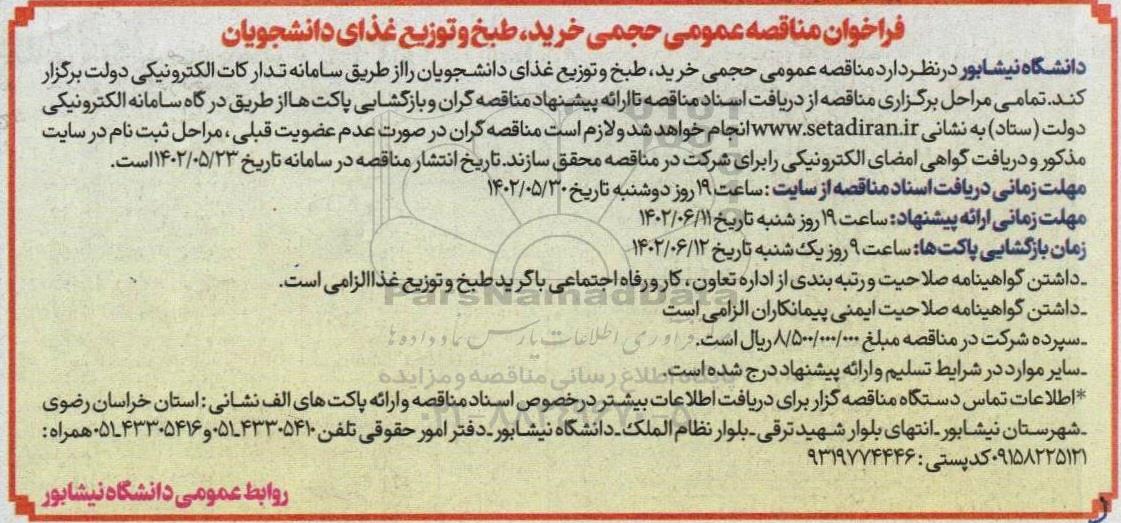 فراخوان مناقصه عمومی حجمی خرید، طبخ و توزیع غذای دانشجویان
دانشگاه نیشابور درنظر دارد مناقصه عمومی حجمی خرید، طبخ و توزیع غذای دانشجویان رااز طریق سامانه تدارکات الکترونیکی دولت برگزار
کند. تمامی مراحل برگزاری مناقصه از دریافت اسناد مناقصه تاارائه پیشنهاد مناقصه گران و بازگشایی پاکت هااز طریق درگاه سامانه الکترونیکی
دولت (ستاد) به نشانی www.setadiran.ir انجام خواهد شد ولازم است مناقصه گران در صورت عدم عضویت قبلی، مراحل ثبت نام در سایت
مذکور و دریافت گواهی امضای الکترونیکی رابرای شرکت در مناقصه محقق سازند. تاریخ انتشار مناقصه در سامانه تاریخ ۱۴۰۲/۰۵/۲۳است.
مهلت زمانی دریافت اسناد مناقصه از سایت: ساعت ۱۹ روز دوشنبه تاریخ ۱۴۰۲/۰۵/۳۰
مهلت زمانی ارائه پیشنهاد: ساعت ۱۹ روز شنبه تاریخ ۱۴۰۲/۰۶/۱۱
زمان بازگشایی پاکت ها: ساعت ۹ روز یک شنبه تاریخ ۱۴۰۲/۰۶/۱۲
ـ داشتن گواهینامه صلاحیت و رتبه بندی از اداره تعاون، کار و رفاه اجتماعی باگرید طبخ و توزیع غذاالزامی است.
ParsNamadData
ـ داشتن گواهینامه صلاحیت ایمنی پیمانکاران الزامی است
فرآوری اطلاعات پارس نماد داده ها
ـ سپرده شرکت در مناقصه مبلغ ۸/۵۰۰/۰۰۰/۰۰۰ ریال است.
ـ سایر موارد در شرایط تسلیم و ارائه پیشنهاد درج شده است.
پایگاه اطلاع رسانی مناقصه و مزایده
*اطلاعات تماس دستگاه مناقصه گزار برای دریافت اطلاعات بیشتر درخصوص اسناد مناقصه و ارائه پاکت های الف نشانی: استان خراسان رضوی
ـ شهرستان نیشابور ـ انتهای بلوار شهید ترقی ـ بلوار نظام الملک ـ دانشگاه نیشابور ـ دفتر امور حقوقی تلفن ۰۵۱ـ۴۳۳۰۵۴۱۰ و ۰۵۱ـ۴۳۳۰۵۴۱۶ همراه:
۰۹۱۵۸۲۲۵۱۲۱ کدپستی: ۹۳۱۹۷۷۴۴۴۶
روابط عمومی دانشگاه نیشابور